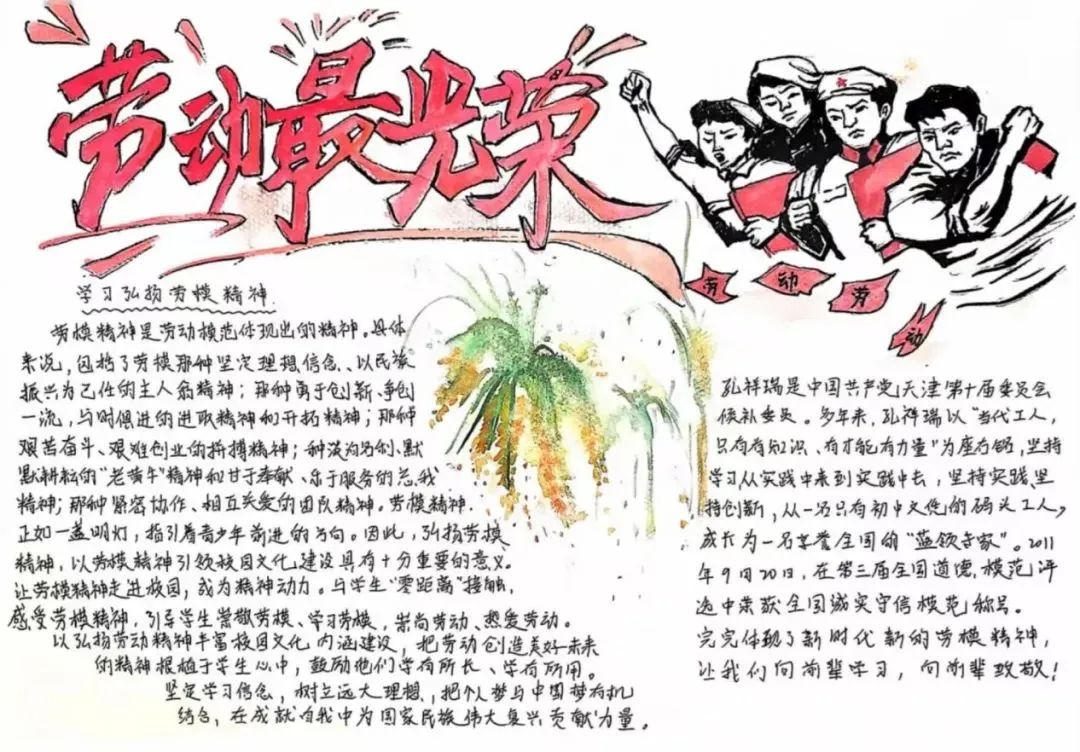 劳动最光荣
劳动劳动
学习弘扬劳模精神
劳模精神是劳动模范体现出的精神。具体
来说,包括了劳模那种坚定理想信念、以民族
振兴为己任的主人翁精神;那种勇于创新、争创
一流,与时俱进的进取精神和开拓精神;那种
艰苦奋斗、艰难创业的拼搏精神;种淡泊名利、默
默耕耘的"老黄牛"精神和甘于奉献、乐于服务的忘我
精神;那种紧密协作、相互关爱的团队精神。劳模精神
正如一盏明灯,指引着青少年前进的方向。因此,弘扬劳模
精神,以劳模精神引领校园文化建设具有十分重要的意义。
让劳模精神走进校园,成为精神动力。与学生"零距离"接触,
感受劳模精神,引导学生崇敬劳模、学习劳模,崇尚劳动、热爱劳动。
以弘扬劳动精神丰富校园文化内涵建设,把劳动创造美好未来
的精神根植于学生心中,鼓励他们学有所长、学有所用。
坚定学习信念,树立远大理想,把个人梦与中国梦有机
结合,在成就自我中为国家民族伟大复兴贡献力量。
孔祥瑞是中国共产党天津第十届委员会
候补委员。多年来,孔祥瑞以"当代工人,
只有有知识、有才能有力量"为座右铭,坚持
学习从实践中来到实践中去,坚持实践、坚
持创新,从一名只有初中文化的码头工人,
成长为一名享誉全国的"蓝领专家"。2011
年9月20日,在第三届全国道德模范评
选中荣获全国诚实守信模范称号。
完完体现了新时代新的劳模精神,
让我们向前辈学习,向前辈致敬!